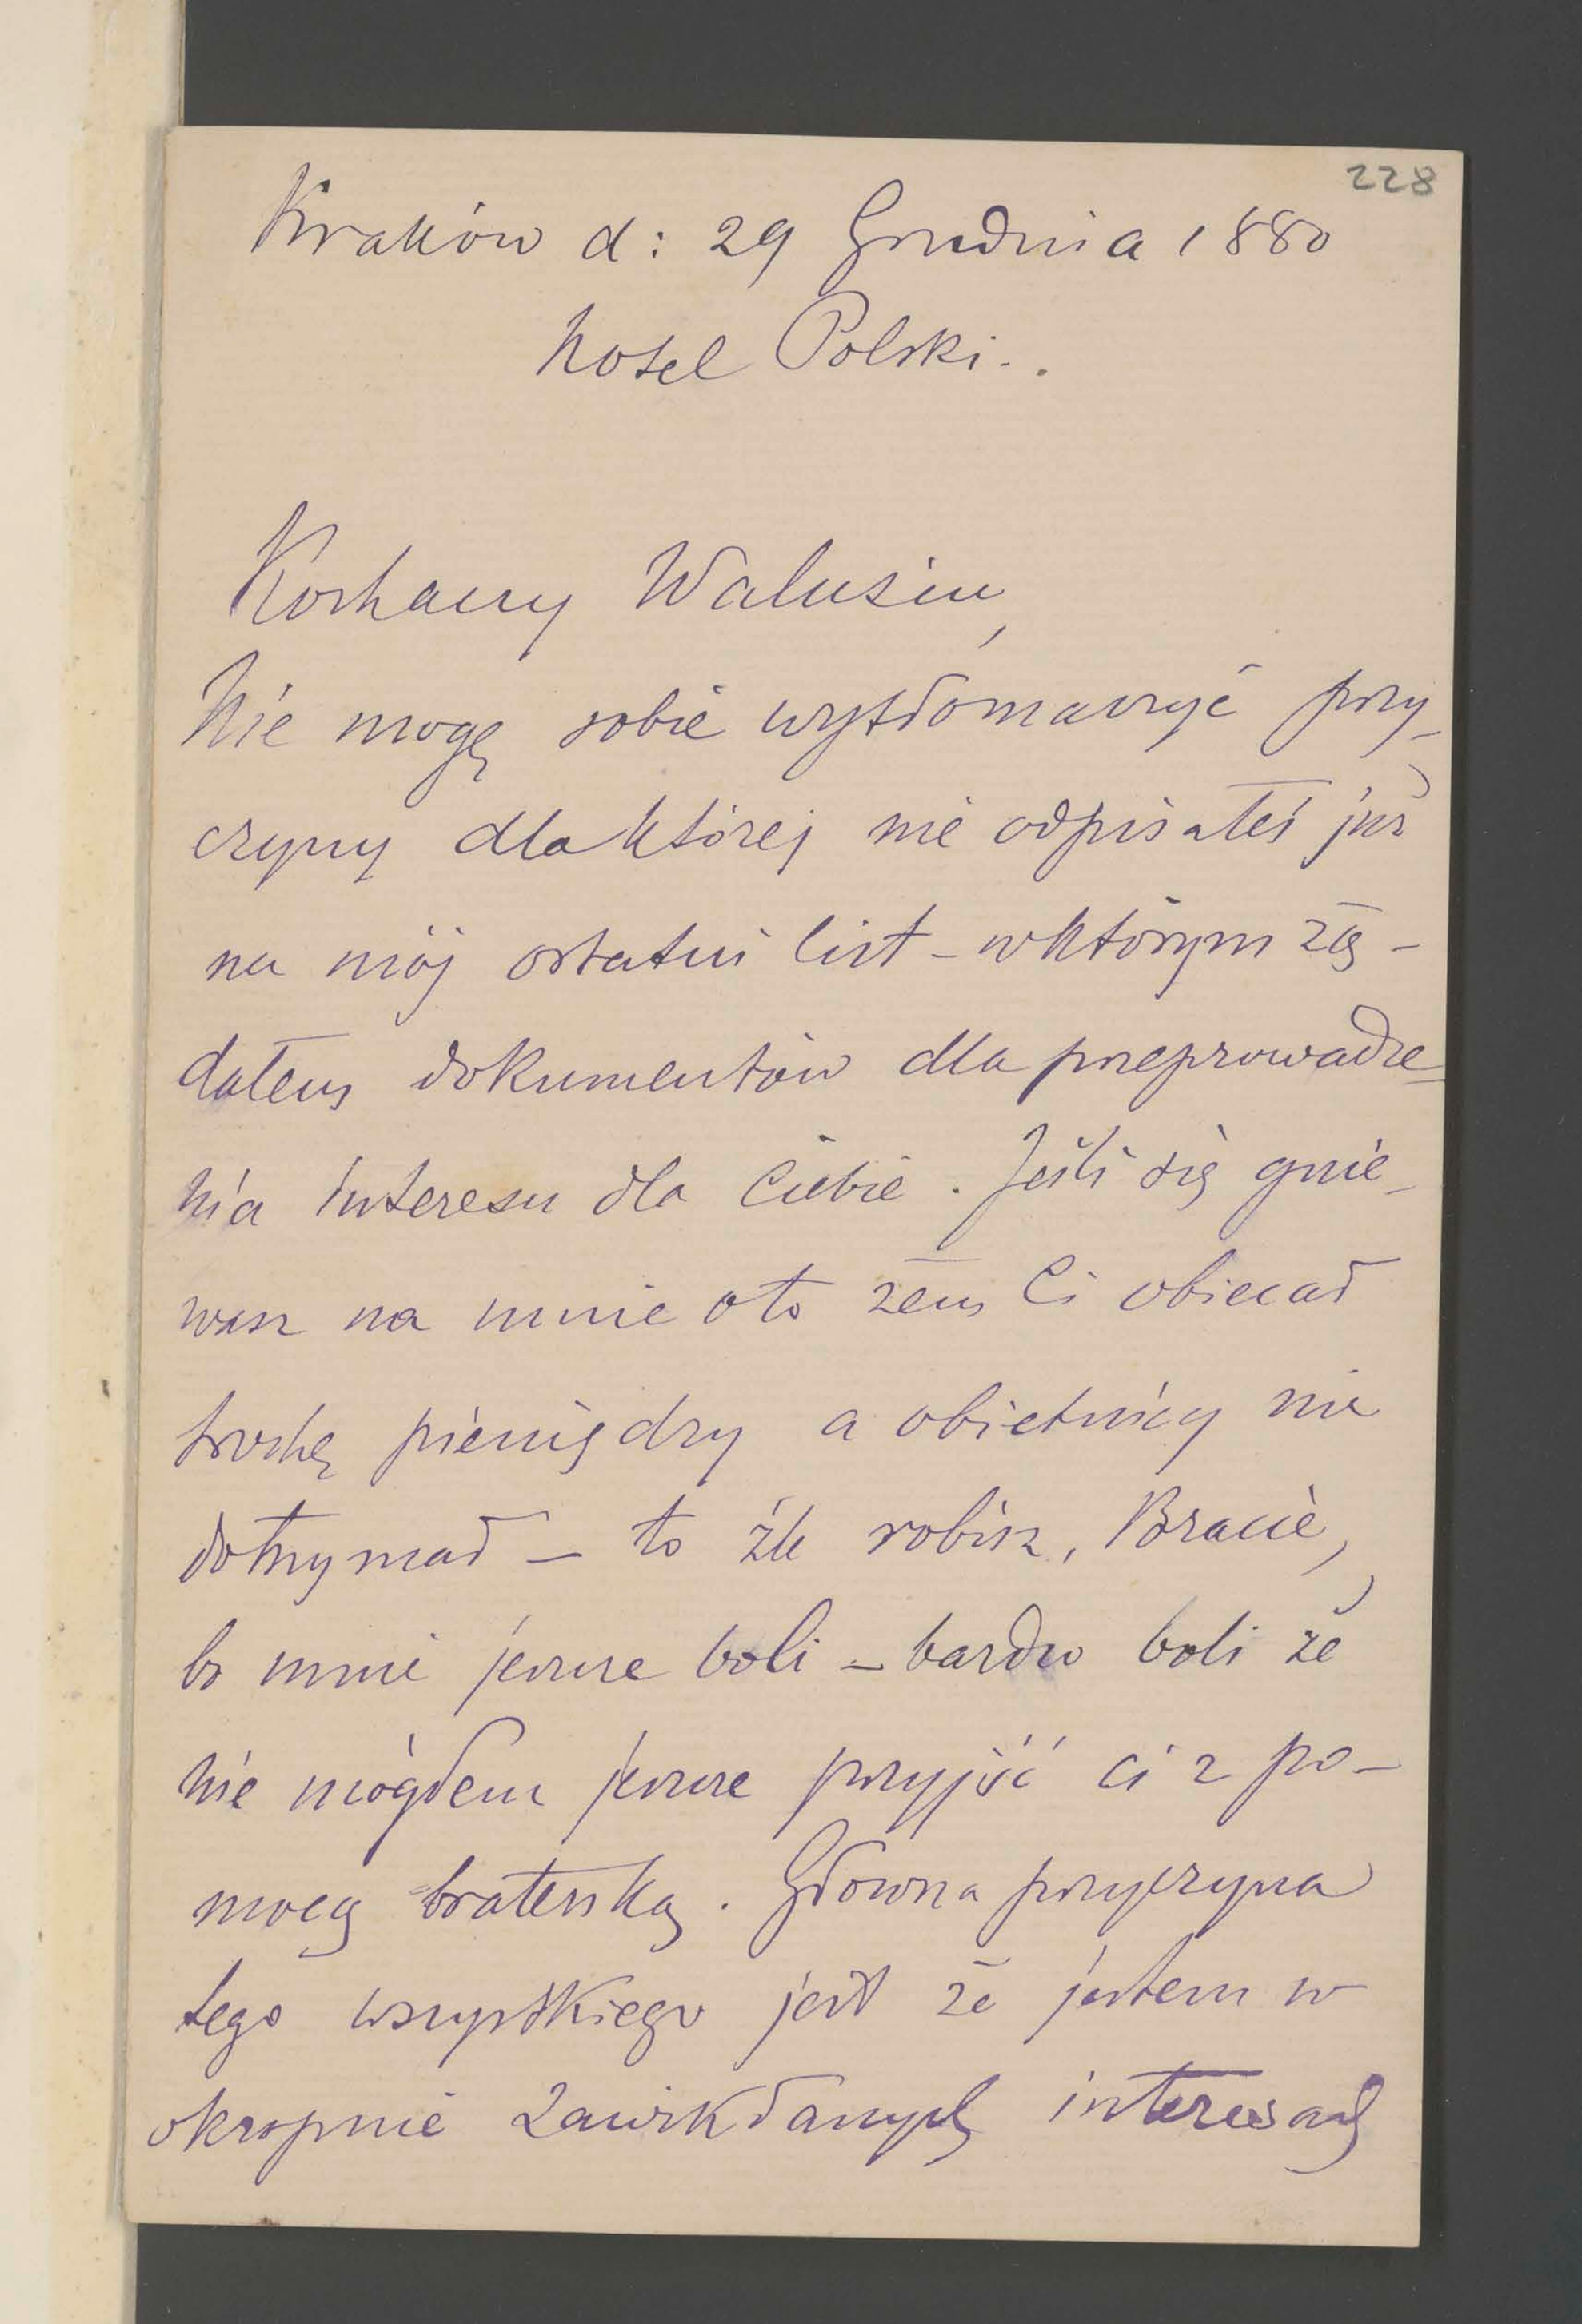 228
Kraków d: 29 Grudnia 1880
hotel Polski..
Kochany Walusiu,
Nie mogę sobie wytłomaczyć przy-
czyny dla której nie odpisałeś już
na mój ostatni list - w którym żą-
dałem dokumentów dla przeprowadze-
nia interesu dla Ciebie. Jeśli się gnie-
wasz na mnie o to żem Ci obiecał
trochę pieniędzy a obietnicy nie
dotrzymał - to źle robisz, Bracie,
bo mnie jeszcze boli - bardzo boli że
nie mógłem jeszcze przyjść ci z po-
mocą braterską. Główna przyczyna
tego wszystkiego jest że jestem w
okropnie zawikłanych interesach